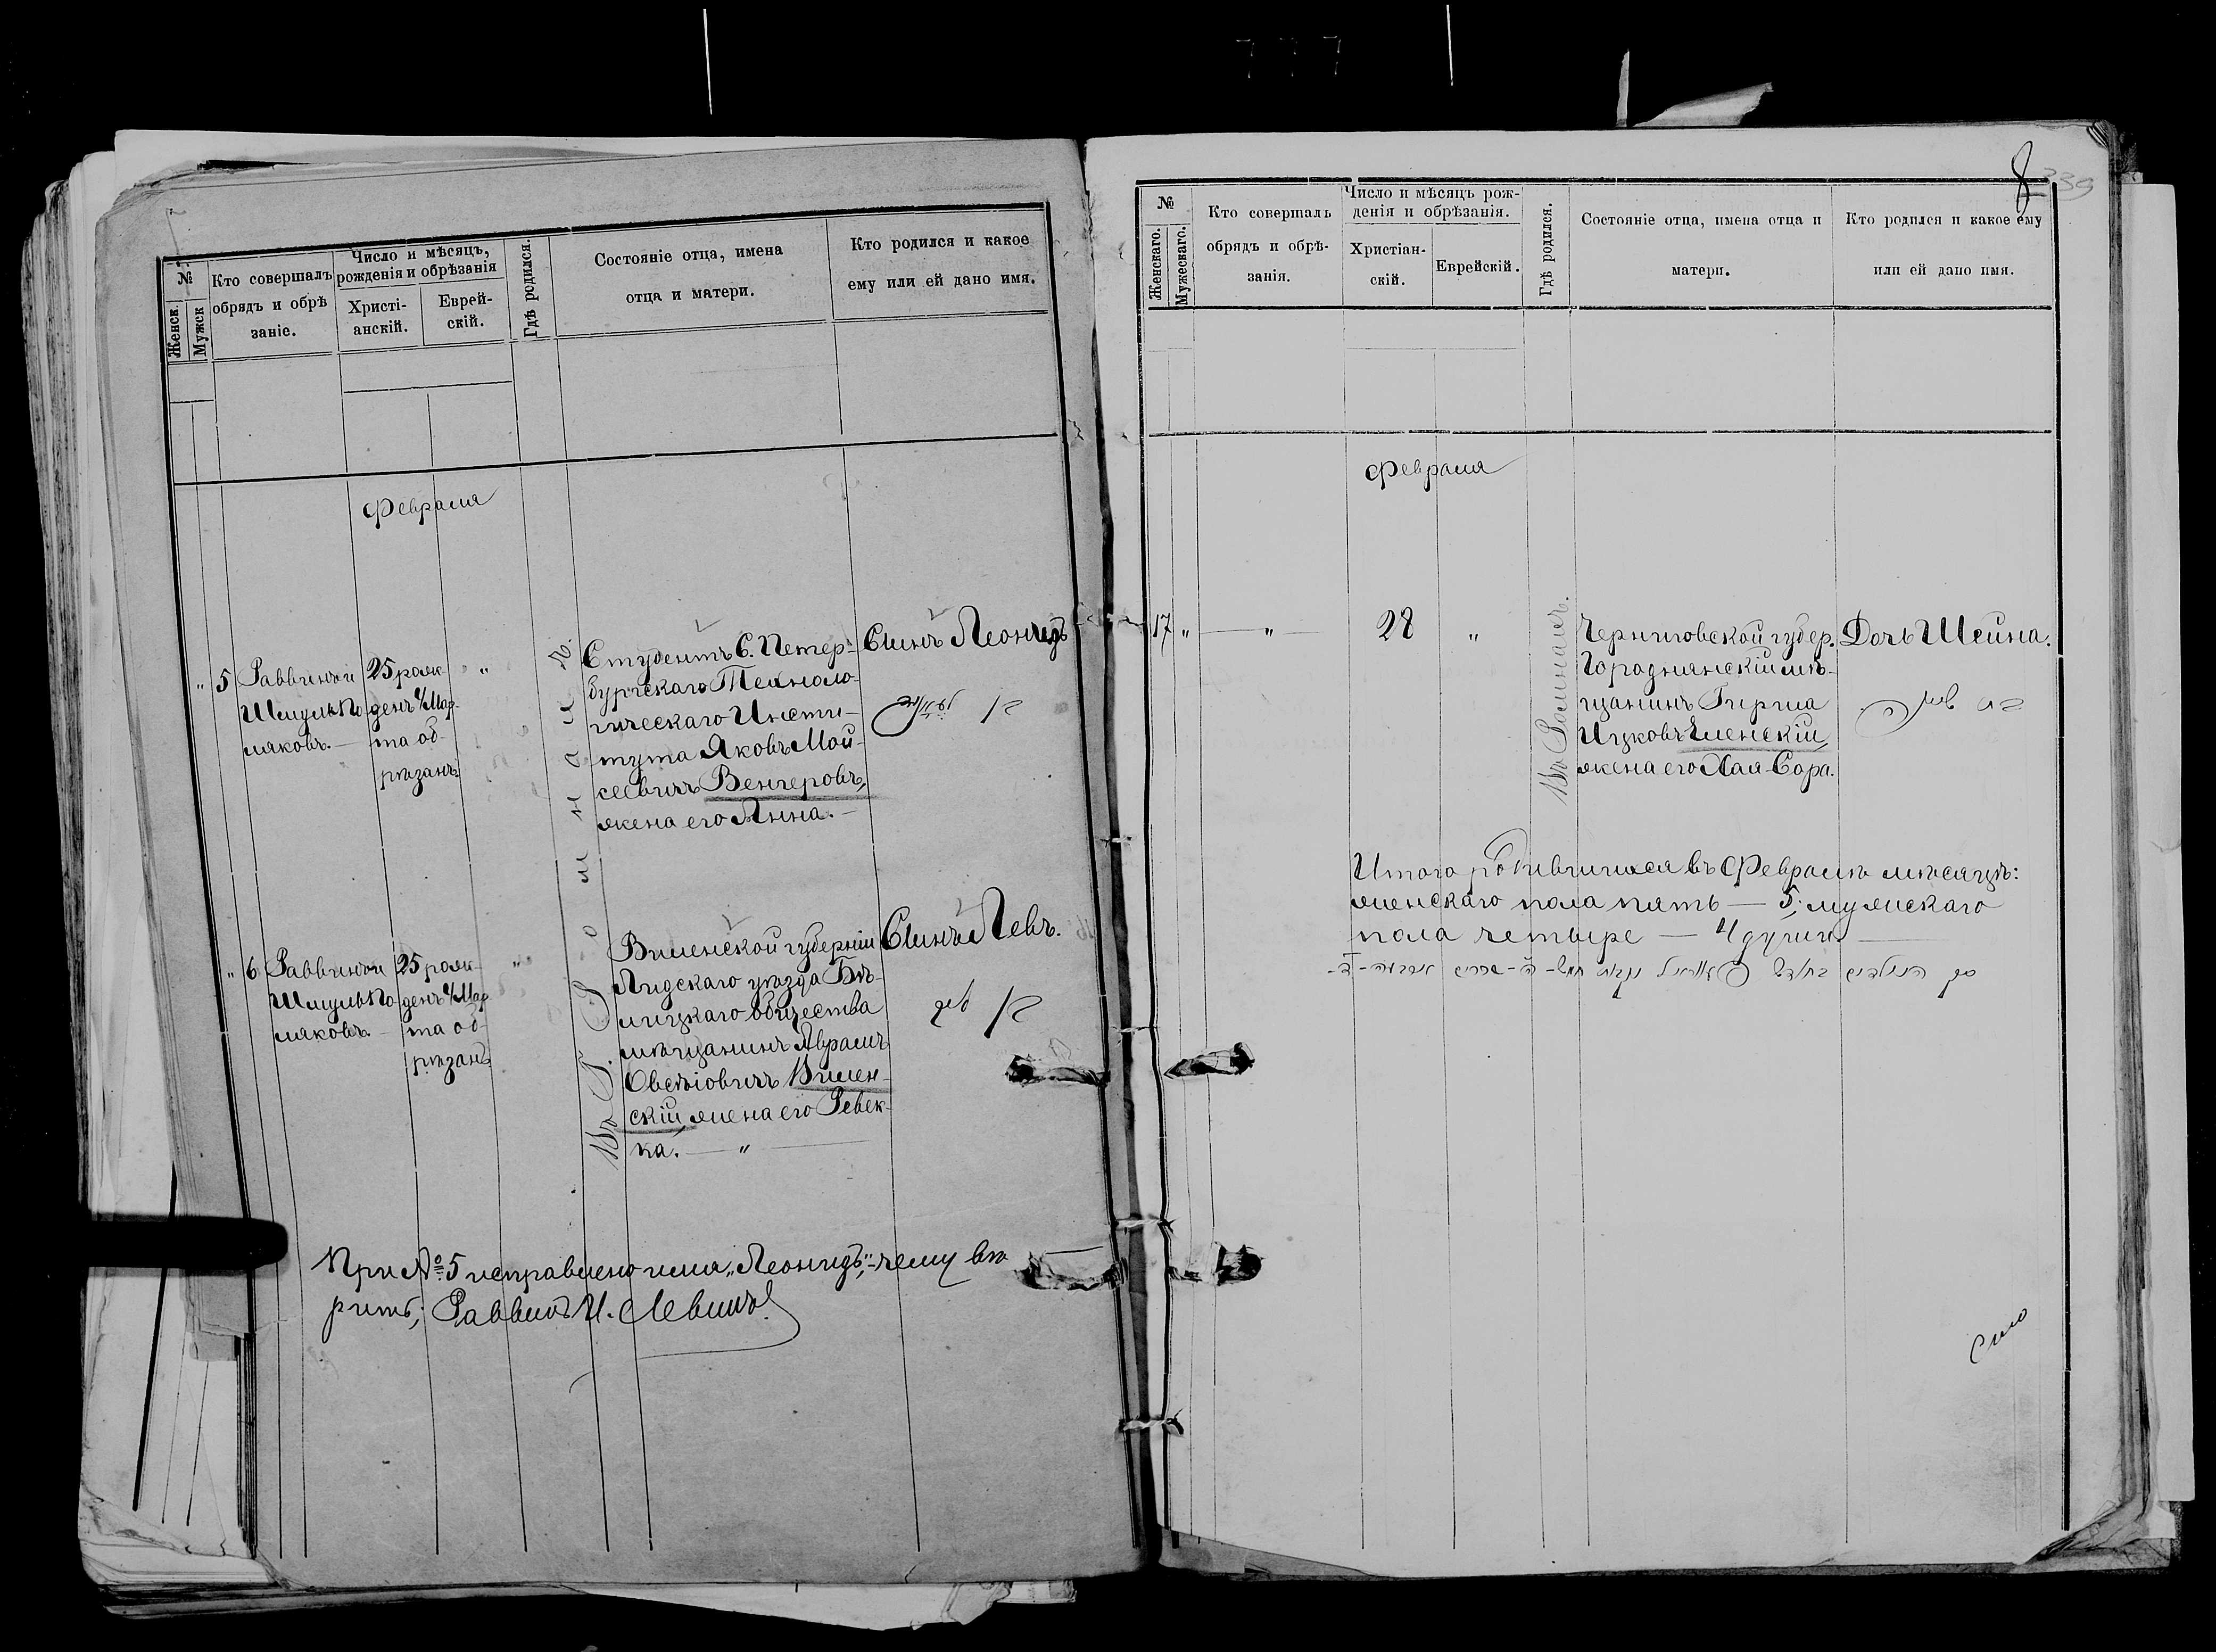 №
Женск.
Мужск
Кто совершалъ
обрядъ и обрѣ
заніе.
Число и мѣсяцъ,
рожденія и обрѣзанія
Христі-
анскій.
Еврей-
скій.
Гдѣ родился.
Состояніе отца, имена
отца и матери.
Кто родился и какое
ему или ей дано имя.
Февраля
" 5
Раввинъ и
Шмуль По
ляковъ. —
25 рож-
денъ 4/Мар-
та об-
рѣзанъ
"
Студентъ С. Петер-
бургскаго Техноло-
гическаго Инсти-
тута Яковъ Мой-
сеевичъ Венгеровъ,
жена его Анна. —
Сынъ Леонидъ
" 6
Раввинъ и
Шмуль По
ляковъ. —
25 рож-
денъ 4/Мар
та об-
рѣзанъ
"
Въ г. Ромнахъ.
Виленской губерніи
Лидскаго уѣзда Бѣ-
лицкаго общества
мѣщанинъ Абрамъ
Овсѣіовичъ Вилен-
скій, жена его Ревек-
ка. — "
Сынъ Левъ.
בן לעב
При № 5 исправлено имя „Леонидъ", – чему вѣ
рить; Раввинъ И. Левинъ
8
239
№
Женскаго.
Мужескаго.
Кто совершалъ
обрядъ и обрѣ-
занія.
Число и мѣсяцъ рож-
денія и обрѣзанія.
Христіан-
скій.
Еврейскій.
Гдѣ родился.
Состояніе отца, имена отца и
матери.
Кто родился и какое ему
или ей дано имя.
Февраля
17 "
— " —
28
"
Въ Ромнахъ.
Черниговской губер.
Городнянскій мѣ-
щанинъ Гирша
Ицковъ Менскій,
жена его Хая-Сора.
Дочь Шейна.
Итого родившихся въ Февралѣ мѣсяцѣ:
женскаго пола пять — 5; мужескаго
пола четыре — 4 души. —